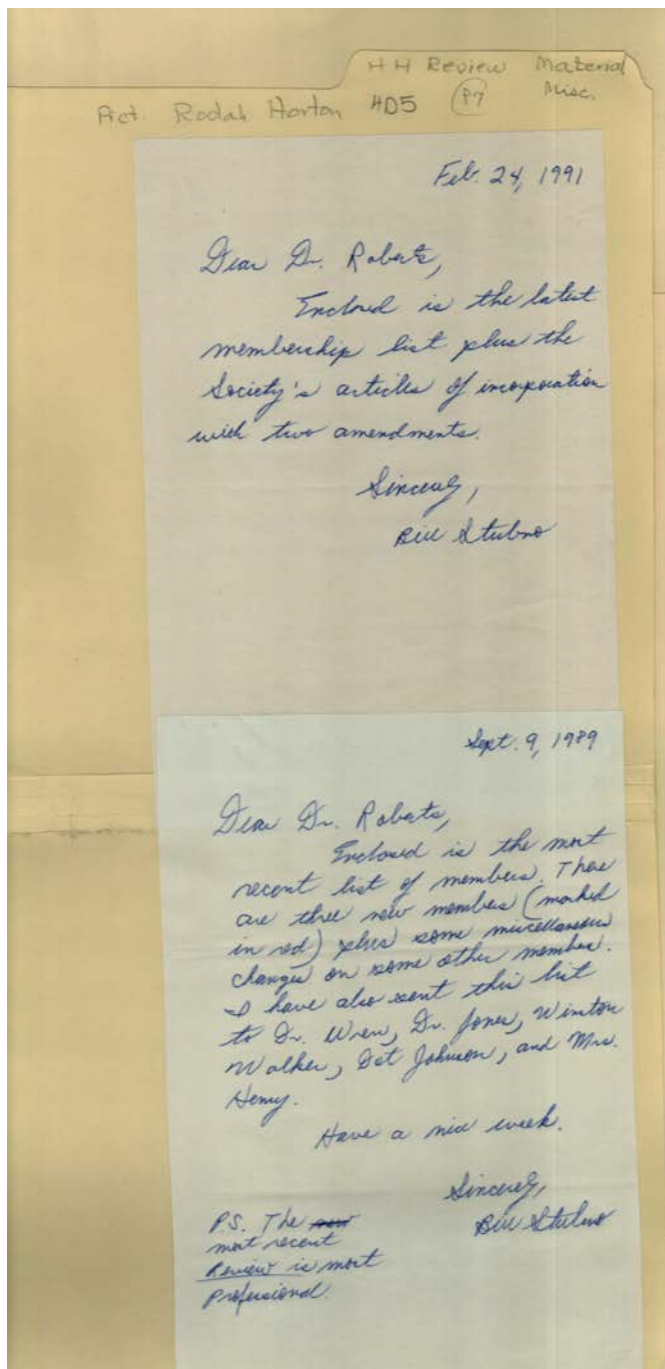 HH Review Material
Misc.
Pict. Rodah Horton 4D5 P7
Feb. 24, 1991
Dear Dr. Roberts,
Enclosed is the latest
membership list plus the
Society's articles of incorporation
with two amendments.
Sincerely,
Bill Stubno
Sept. 9, 1989
Dear Dr. Roberts,
Enclosed is the most
recent list of members. There
are three new members (marked
in red) plus some miscellaneous
changes on some other member.
I have also sent this list
to Dr. Wren, Dr. Jones, Winston
Walker, Dot Johnson, and Mrs.
Henry.
Have a nice week.
Sincerely,
Bill Stubno
P.S. The
most recent
Review is most
Professional.